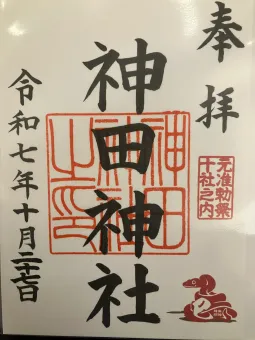 奉拝
元准勅祭
十社之内
神田神社
神田
神社
之印
令和七年十月